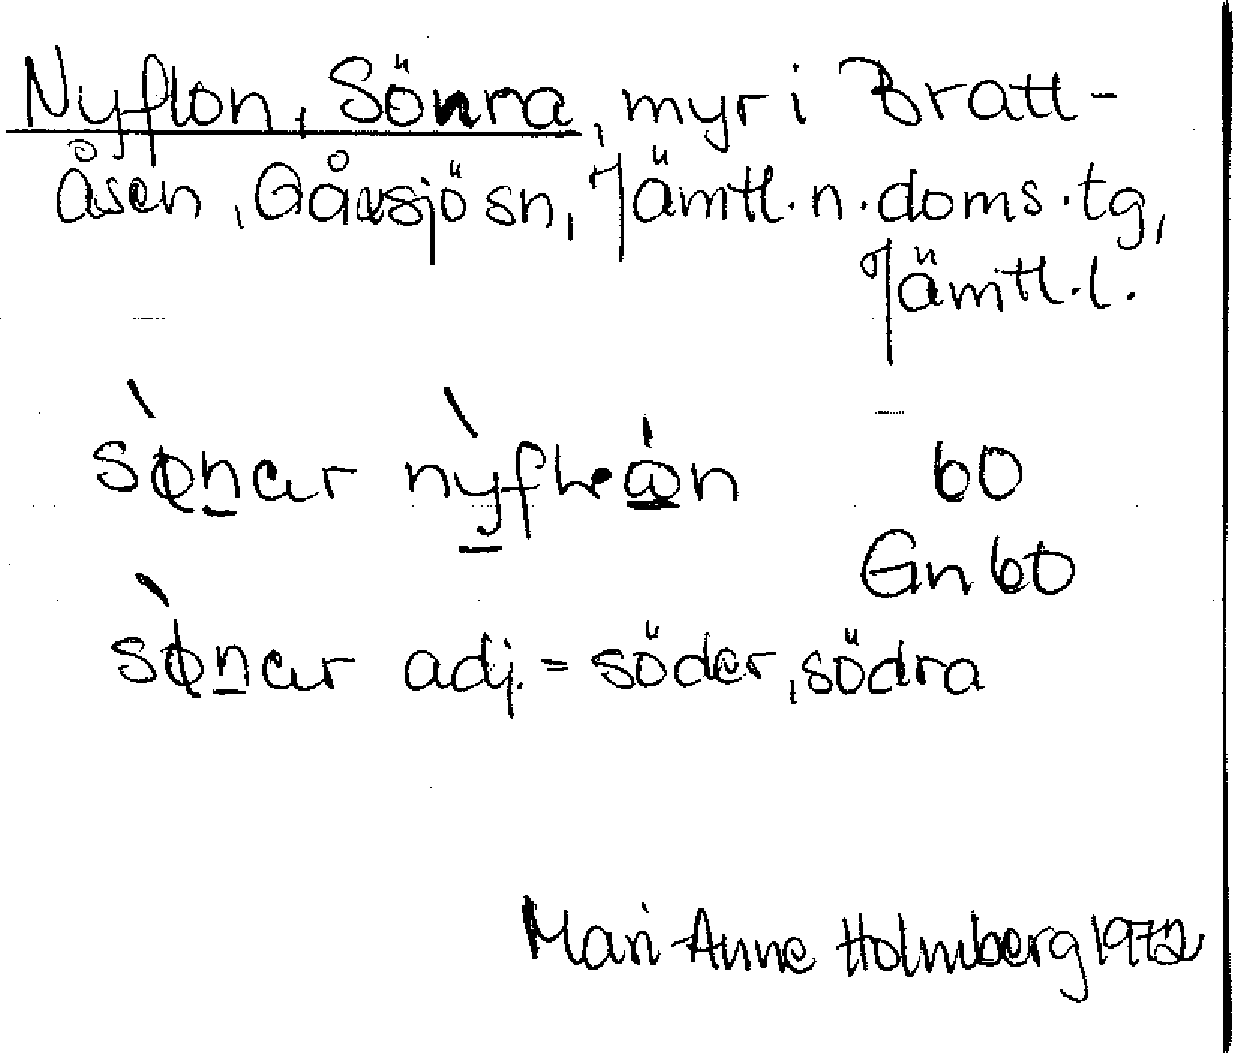 Nyflon, Sönra, myr i Bratt-
åsen, Gåxsjö sn, Jämtl. n. doms. tg,
Jämtl. l.
60
Gn 60
adj. = söder, södra
Mari-Anne Holmberg 1972